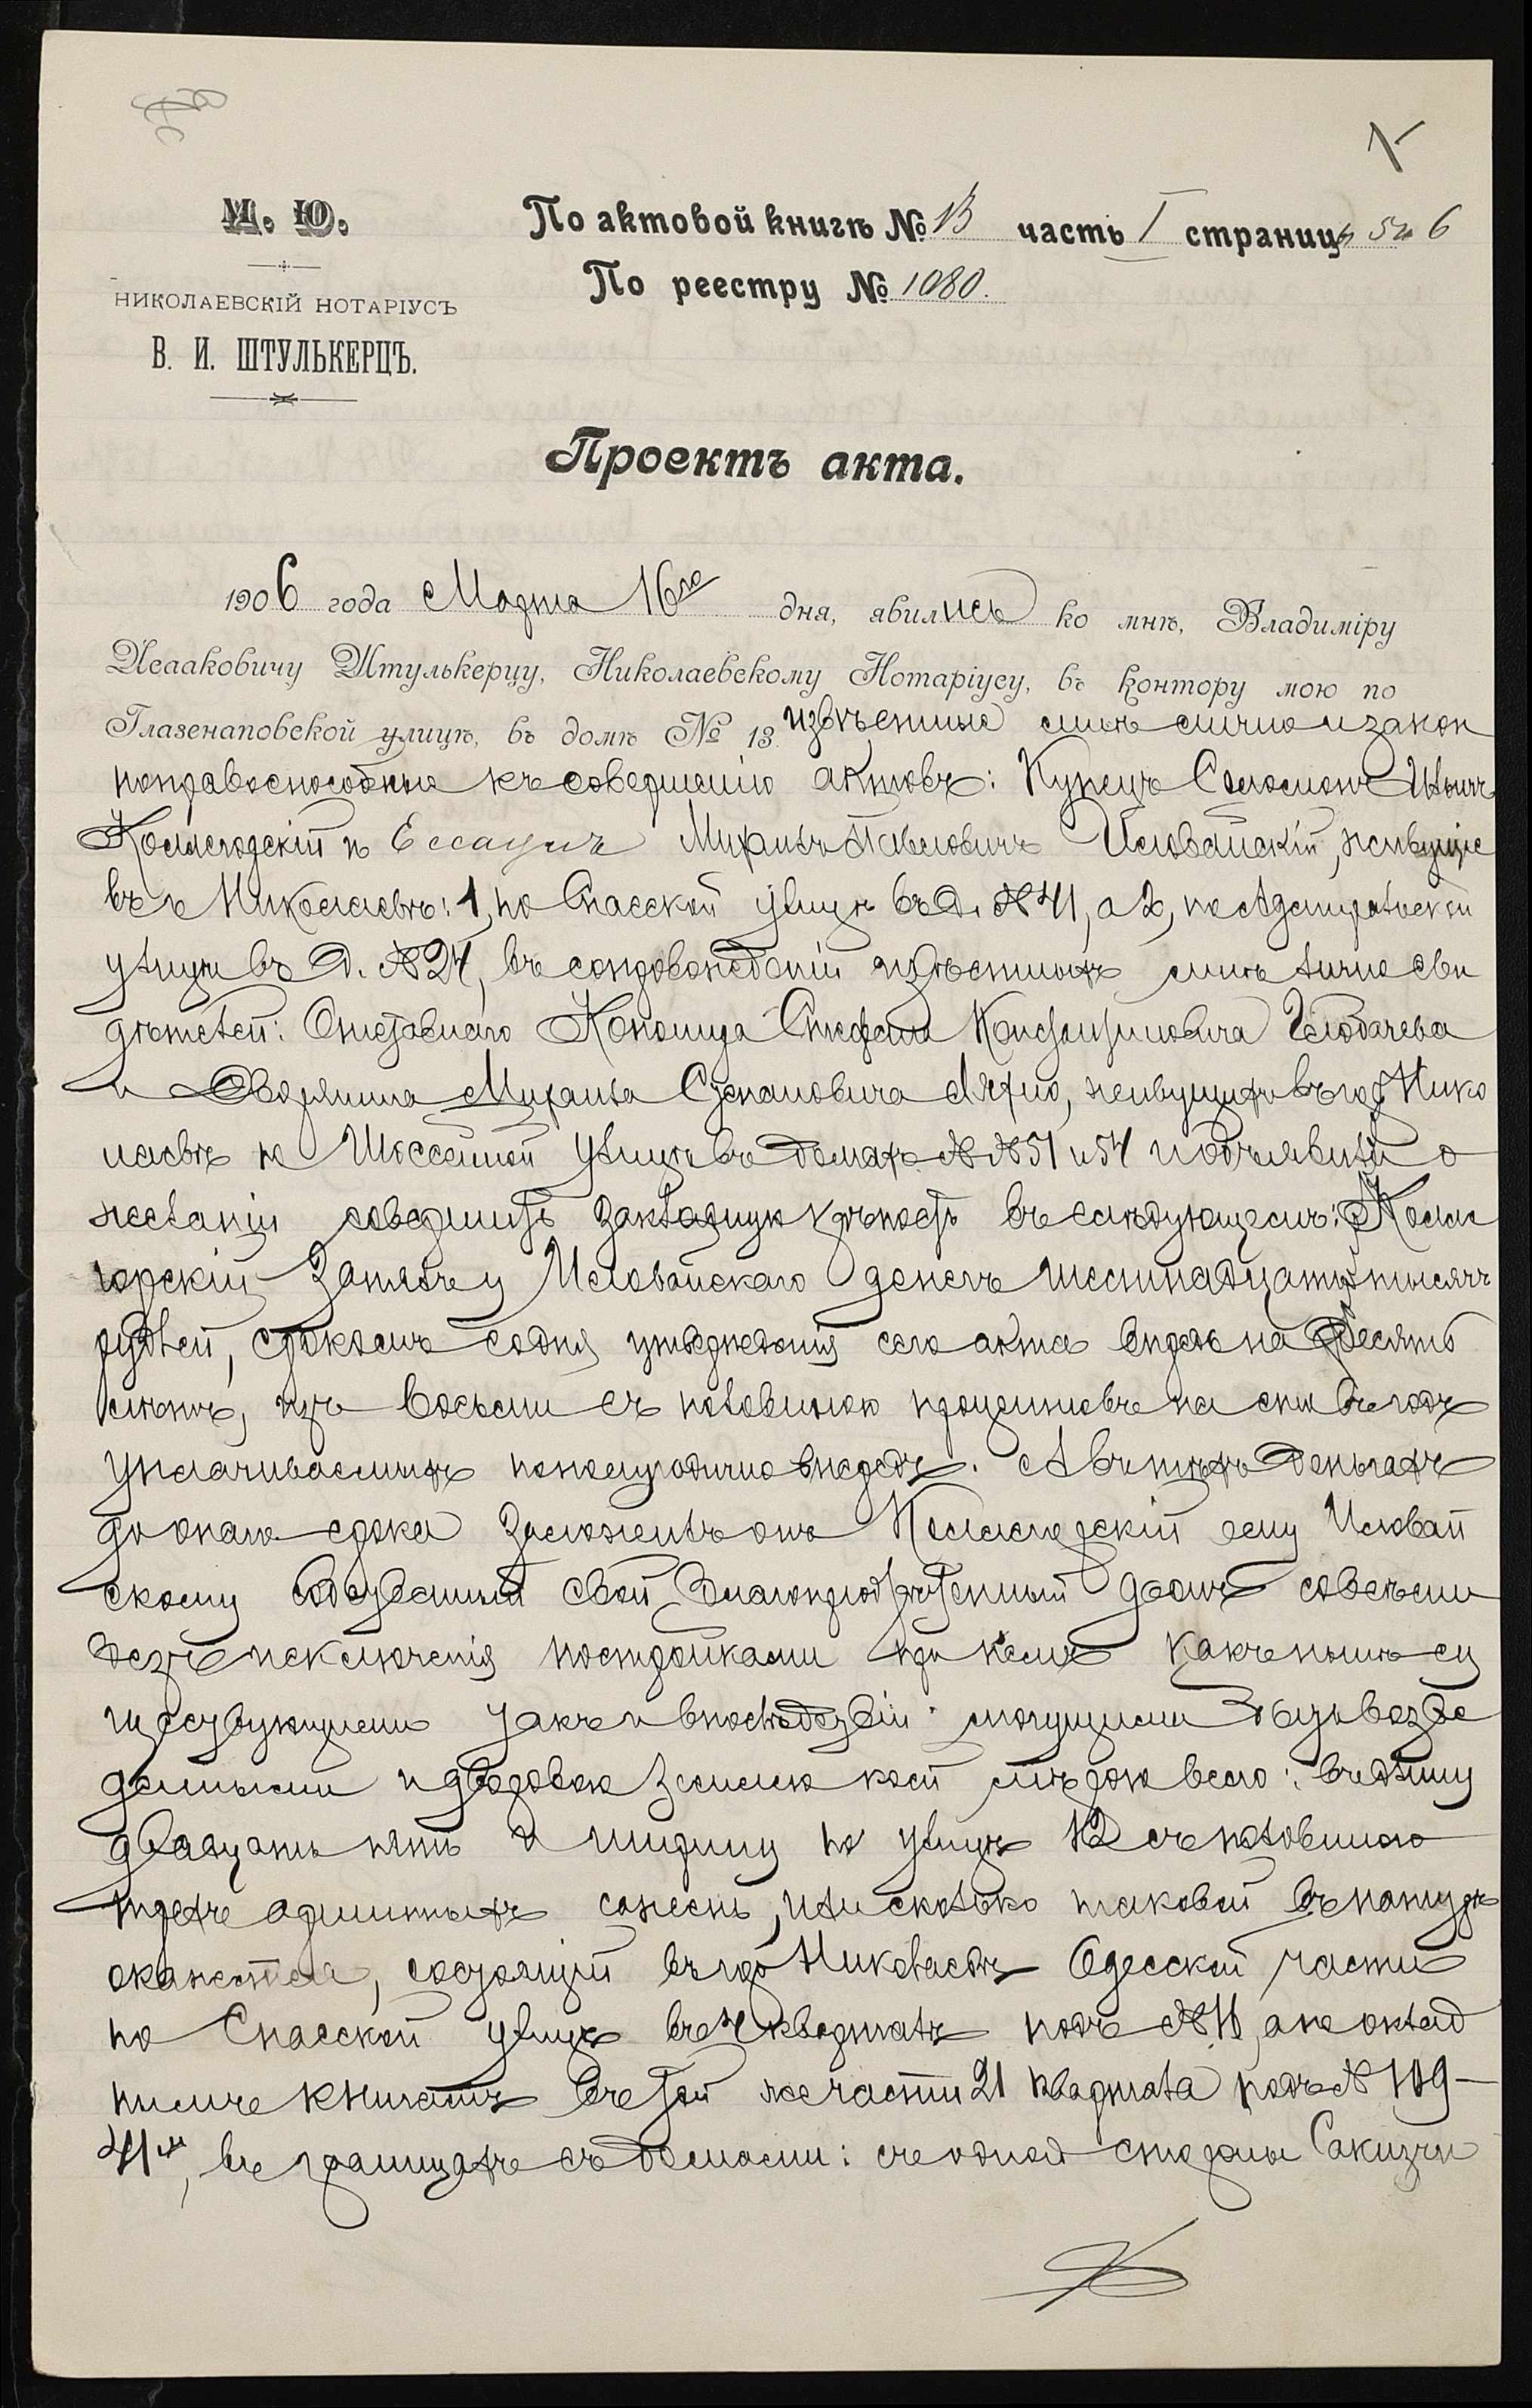 М. Ю.
НИКОЛАЕВСКІЙ НОТАРІУСЪ
В. И. ШТУЛЬКЕРЦЪ.
По актовой книгѣ № 13 часть I страницѣ 5 и 6
По реестру № 1080.
Проектъ акта.
1906 года Марта 16го дня, явились ко мнѣ, Владиміру
Исааковичу Штулькерцу, Николаевскому Нотаріусу, въ контору мою по
Глазенаповской улицѣ, въ домѣ № 13 извѣстные мнѣ лично и закон
ноправоспособные къ совершенію актовъ: Купецъ Соломонъ Ильичъ
Колмогорскій и Ессаулъ Михаилъ Павловичъ Иловайскій, живущіе
въ г. Николаевѣ: 1, по Спасской улицѣ въ д. № 41, а 2, по Адмиральской
улицѣ въ д. № 24, въ сопровожденіи извѣстныхъ мнѣ лично сви
дѣтелей: Отставного Стефана Константиновича
и Дворянина Михаила Степановича живущихъ въ гор. Нико
лаевѣ по Шоссейной улицѣ въ домахъ №№ 51 и 54 и объявили о
желаніи совершить закладную крѣпость въ слѣдующемъ: Колмо
горскій занялъ у Иловайскаго денегъ шестнадцать тысячъ
рублей, срокомъ со дня утвержденія сего акта впредь на десять
лѣтъ, изъ восьми съ половиною процентовъ на сто въ годъ
уплачиваемыхъ пополугодично впередъ. А въ тѣхъ деньгахъ
до онаго срока заложилъ онъ Колмогорскій ему Иловай
скому собственный свой благопріобрѣтенный домъ со всѣми
безъ исключенія постройками при немъ какъ нынѣ су
ществующими такъ и впослѣдствіи могущими быть возве
денными и дворовою землею коей мѣрою всего: въ длину
двадцать пять и ширину по улицѣ 12 съ половиною
трехъ аршинныхъ сажень, или сколько таковой въ натурѣ
окажется, состоящій въ гор. Николаевѣ Одесской части
по Спасской улицѣ въ квадратѣ подъ № а по оклад
нымъ книгамъ въ той же части 21 квартала подъ № 109 —
41м, въ границахъ съ домами: съ одной стороны